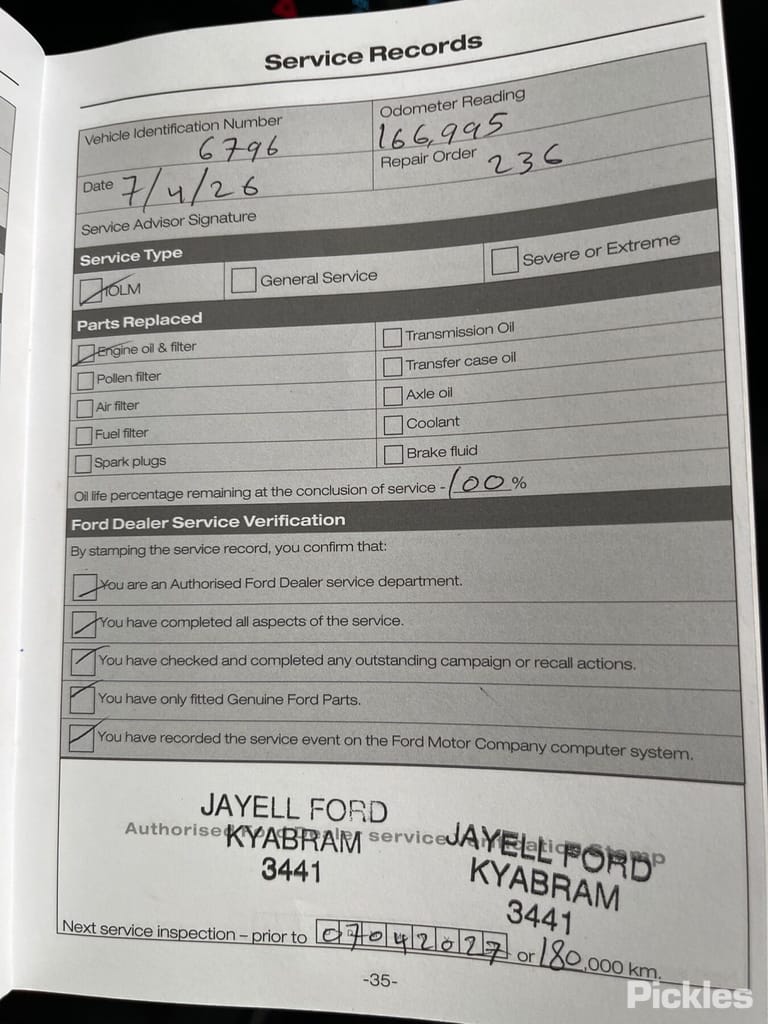 Service Records
Vehicle Identification Number
6796
Odometer Reading
166,995
Date 7/4/26
Repair Order 236
Service Advisor Signature
Service Type
IOLM
General Service
Severe or Extreme
Parts Replaced
Engine oil & filter
Transmission Oil
Pollen filter
Transfer case oil
Air filter
Axle oil
Fuel filter
Coolant
Spark plugs
Brake fluid
Oil life percentage remaining at the conclusion of service - 100 %
Ford Dealer Service Verification
By stamping the service record, you confirm that:
You are an Authorised Ford Dealer service department.
You have completed all aspects of the service.
You have checked and completed any outstanding campaign or recall actions.
You have only fitted Genuine Ford Parts.
You have recorded the service event on the Ford Motor Company computer system.
JAYELL FORD
KYABRAM
3441
Authorised Dealer service
JAYELL FORD
KYABRAM
3441
Next service inspection – prior to 07042027 or 180,000 km.
-35-
Pickles